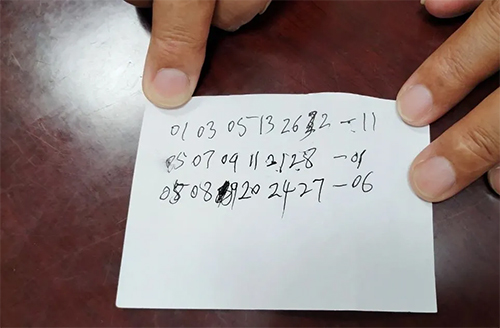 01 03 05 13 26 32 - 11
05 07 09 11 21 28 - 01
05 08 19 20 24 27 - 06